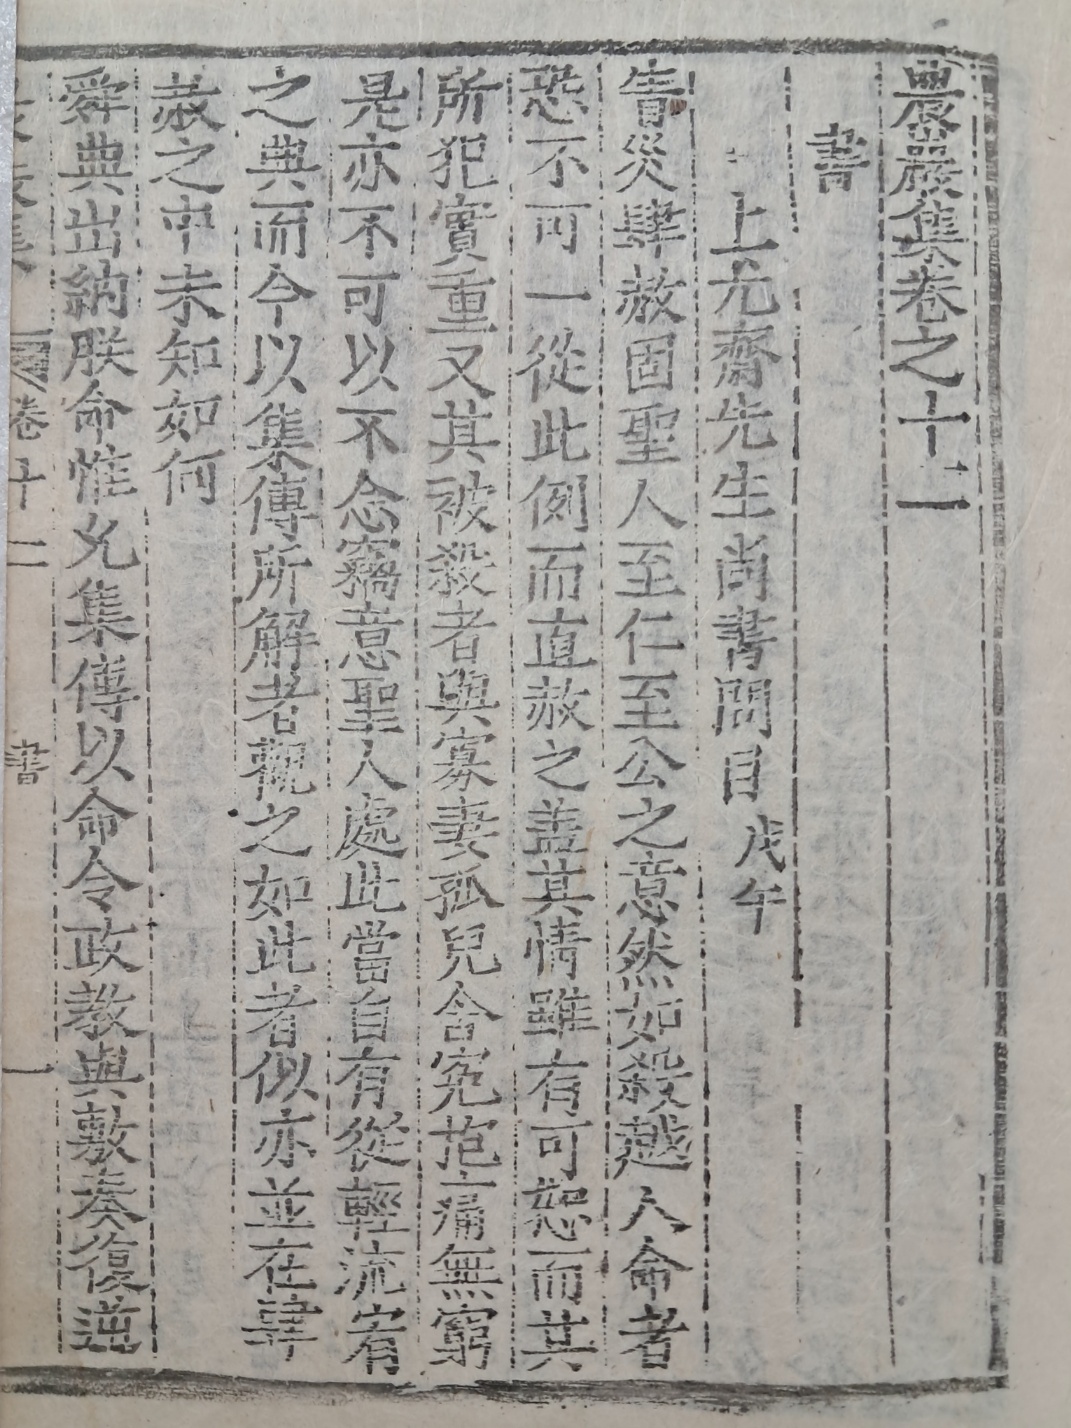 農巖集卷之十二
書
上尤齋先生尚書問目 戊午
眚災肆赦固聖人至仁至公之意然如殺越人命者
恐不可一從此例而直赦之盖其情雖有可恕而其
所犯實重又其被殺者與寡妻孤兒含寃抱痛無窮
是亦不可以不念竊意聖人處此當自有從輕流宥
之典而今以集傳所解者觀之如此者似亦並在肆
赦之中未知如何
舜典出納朕命惟允集傳以命令政教與敷奏復逆
卷十二 書 一